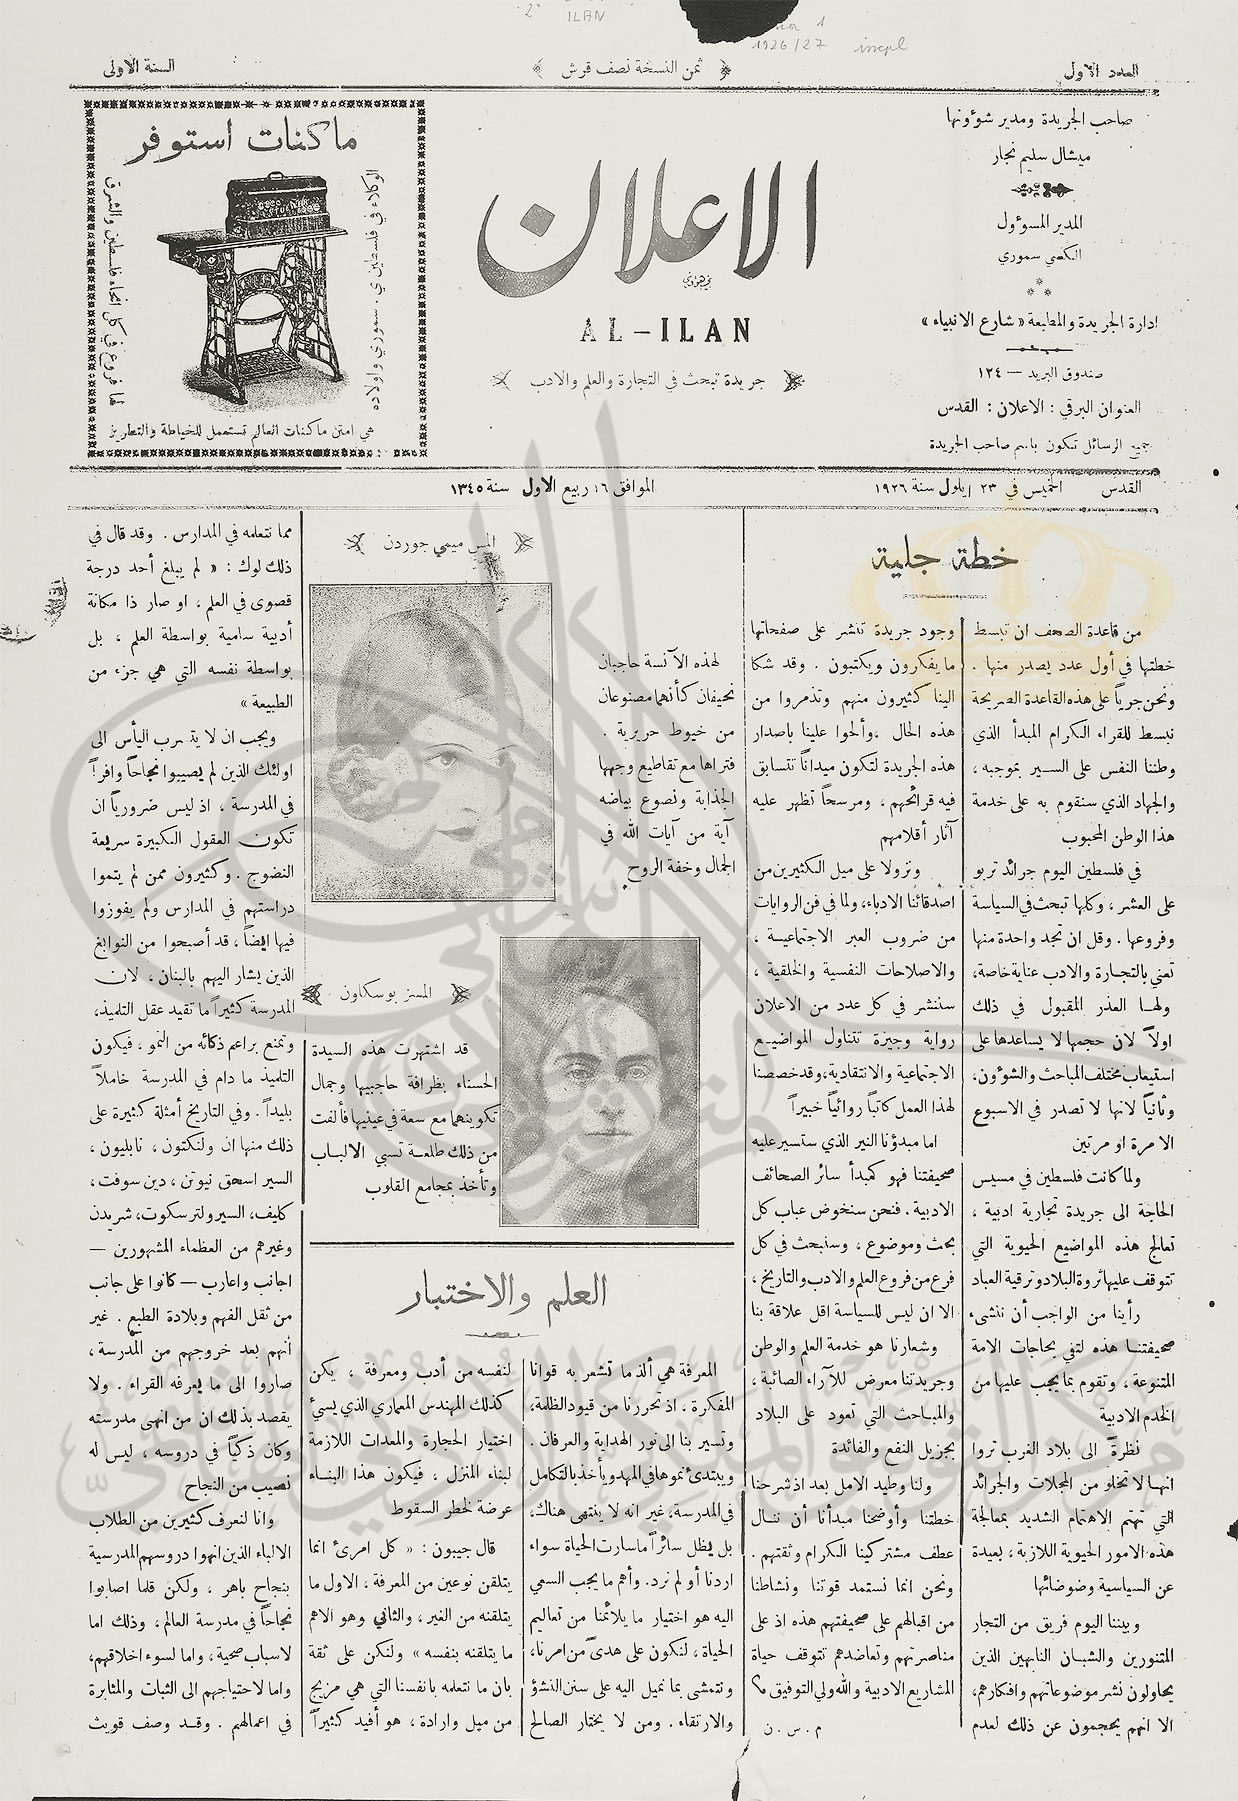 العدد الاول
ثمن النسخة نصف قرش
السنة الاولى
صاحب الجريدة ومدير شؤونها
ميشال سليم نجار
المدير المسؤول
الكسي سموري
ادارة الجريدة والمطبعة «شارع الانبياء»
صندوق البريد — ١٢٤
العنوان البرقي : الاعلان : القدس
جميع الرسائل تكون باسم صاحب الجريدة
الاعلان
AL-ILAN
جريدة تبحث في التجارة والعلم والادب
ماكنات استوفر
الوكلاء في فلسطين ي . سموري واولاده
لها فروع في كل انحاء فلسطين والشرق
هي امتن ماكنات العالم تستعمل للخياطة والتطريز
القدس الخميس في ٢٣ ايلول سنة ١٩٢٦
الموافق ١٦ ربيع الاول سنة ١٣٤٥
خطة جلية
من قاعدة الصحف ان تبسط
خطتها في أول عدد يصدر منها .
ونحن جرياً على هذه القاعدة الصريحة
نبسط للقراء الكرام المبدأ الذي
وطننا النفس على السير بموجبه ،
والجهاد الذي سنقوم به على خدمة
هذا الوطن المحبوب
في فلسطين اليوم جرائد تربو
على العشر ، وكلها تبحث في السياسة
وفروعها . وقل ان تجد واحدة منها
تعني بالتجارة والادب عناية خاصة،
ولها العذر المقبول في ذلك
اولاً لان حجمها لا يساعدها على
استيعاب مختلف المباحث والشؤون،
وثانياً لانها لا تصدر في الاسبوع
الا مرة او مرتين
ولما كانت فلسطين في مسيس
الحاجة الى جريدة تجارية ادبية ،
تعالج هذه المواضيع الحيوية التي
تتوقف عليها ثروة البلاد وترقية العباد
رأينا من الواجب أن ننشىء
صحيفتنا هذه لتفي بحاجات الامة
المتنوعة ، وتقوم بما يجب عليها من
الخدم الادبية
نظرةً الى بلاد الغرب تروا
انها لا تخلو من المجلات والجرائد
التي تهتم الاهتمام الشديد بمعالجة
هذه الامور الحيوية اللازبة ، بعيدة
عن السياسية وضوضائها
وبيننا اليوم فريق من التجار
المتنورين والشبان النابهين الذين
يحاولون نشر موضوعاتهم وافكارهم،
الا انهم يحجمون عن ذلك لعدم
وجود جريدة تنشر على صفحاتها
ما يفكرون ويكتبون . وقد شكا
الينا كثيرون منهم وتذمروا من
هذه الحال ، وألحوا علينا باصدار
هذه الجريدة لتكون ميداناً تتسابق
فيه قرائحهم ، ومرسحاً تظهر عليه
آثار أقلامهم
ونزولا على ميل الكثيرين من
اصدقائنا الادباء، ولما في فن الروايات
من ضروب العبر الاجتماعية ،
والاصلاحات النفسية والخلقية ،
سننشر في كل عدد من الاعلان
رواية وجيزة تتناول المواضيع
الاجتماعية والانتقادية، وقد خصصنا
لهذا العمل كاتباً روائياً خبيراً
اما مبدؤنا النير الذي ستسير عليه
صحيفتنا فهو كمبدأ سائر الصحائف
الادبية . فنحن سنخوض عباب كل
بحث وموضوع ، وسنبحث في كل
فرع من فروع العلم والادب والتاريخ ،
الا ان ليس للسياسة اقل علاقة بنا
وشعارنا هو خدمة العلم والوطن
وجريدتنا معرض للآراء الصائبة ،
والمباحث التي تعود على البلاد
بجزيل النفع والفائدة
ولنا وطيد الامل بعد اذ شرحنا
خطتنا وأوضحنا مبدأنا أن ننال
عطف مشتركينا الكرام وثقتهم .
ونحن انما نستمد قوتنا ونشاطنا
من اقبالهم على صحيفتهم هذه اذ على
مناصرتهم وتعاضدهم تتوقف حياة
المشاريع الادبية والله ولي التوفيق ؟
م . س . ن
المس ميمي جوردن
لهذه الآنسة حاجبان
نحيفان كأنهما مصنوعان
من خيوط حريرية .
فتراها مع تقاطيع وجهها
الجذابة ونصوع بياضه
آية من آيات الله في
الجمال وخفة الروح
المسز بوسكاون
قد اشتهرت هذه السيدة
الحسناء بظرافة حاجبيها وجمال
تكوينهما مع سعة في عينيها فألفت
من ذلك طلعة تسبي الالباب
وتأخذ بمجامع القلوب
العلم والاختبار
المعرفة هي ألذ ما تشعر به قوانا
المفكرة ، اذ تحررنا من قيود الظلمة،
وتسير بنا الى نور الهداية والعرفان .
ويبتدئ نموها في المهد ويأخذ بالتكامل
في المدرسة، غير انه لا ينتهى هناك،
بل يظل سائراً ما سارت الحياة سواء
اردنا أو لم نرد . وأهم ما يجب السعي
اليه هو اختيار ما يلائمنا من تعاليم
الحياة ، لنكون على هدىً من امرنا،
ونتمشى بما نميل اليه على سنن النشؤ
والارتقاء . ومن لا يختار الصالح
لنفسه من أدب ومعرفة ، يكن
كذلك المهندس المعماري الذي يسئ
اختيار الحجارة والمعدات اللازمة
لبناء المنزل ، فيكون هذا البناء
عرضة لخطر السقوط
قال جيبون : « كل امرئ انما
يتلقن نوعين من المعرفة ، الاول ما
يتلقنه من الغير، والثاني وهو الاهم
ما يتلقنه بنفسه » ولنكن على ثقة
بان ما نتعلمه بانفسنا التي هي مزيج
من ميل وارادة ، هو أفيد كثيراً
مما نتعلمه في المدارس . وقد قال في
ذلك لوك : « لم يبلغ أحد درجة
قصوى في العلم ، او صار ذا مكانة
أدبية سامية بواسطة العلم ، بل
بواسطة نفسه التي هي جزء من
الطبيعة »
ويجب ان لا يتسرب اليأس الى
اولئك الذين لم يصيبوا نجاحاً وافراً
في المدرسة ، اذ ليس ضرورياً ان
تكون العقول الكبيرة سريعة
النضوج . وكثيرون ممن لم يتموا
دراستهم في المدارس ولم يفوزوا
فيها ايضاً ، قد أصبحوا من النوابغ
الذين يشار اليهم بالبنان ، لان
المدرسة كثيراً ما تقيد عقل التلميذ،
وتمنع براعم ذكائه من النمو ، فيكون
التلميذ ما دام في المدرسة خاملاً
بليداً . وفي التاريخ أمثلة كثيرة على
ذلك منها ان ولنكتون ، نابليون ،
السير اسحق نيوتن ، دين سوفت ،
كليف، السير ولتر سكوت، شريدن
وغيرهم من العظماء المشهورين —
اجانب واعارب — كانوا على جانب
من ثقل الفهم وبلادة الطبع . غير
أنهم بعد خروجهم من المدرسة ،
صاروا الى ما يعرفه القراء . ولا
يقصد بذلك ان من انهى مدرسته
وكان ذكياً في دروسه ، ليس له
نصيب من النجاح
وانا لنعرف كثيرين من الطلاب
الالباء الذين انهوا دروسهم المدرسية
بنجاح باهر ، ولكن قلما اصابوا
نجاحاً في مدرسة العالم، وذلك اما
لاسباب صحية ، واما لسوء اخلاقهم،
واما لاحتياجهم الى الثبات والمثابرة
في اعمالهم . وقد وصف قويت